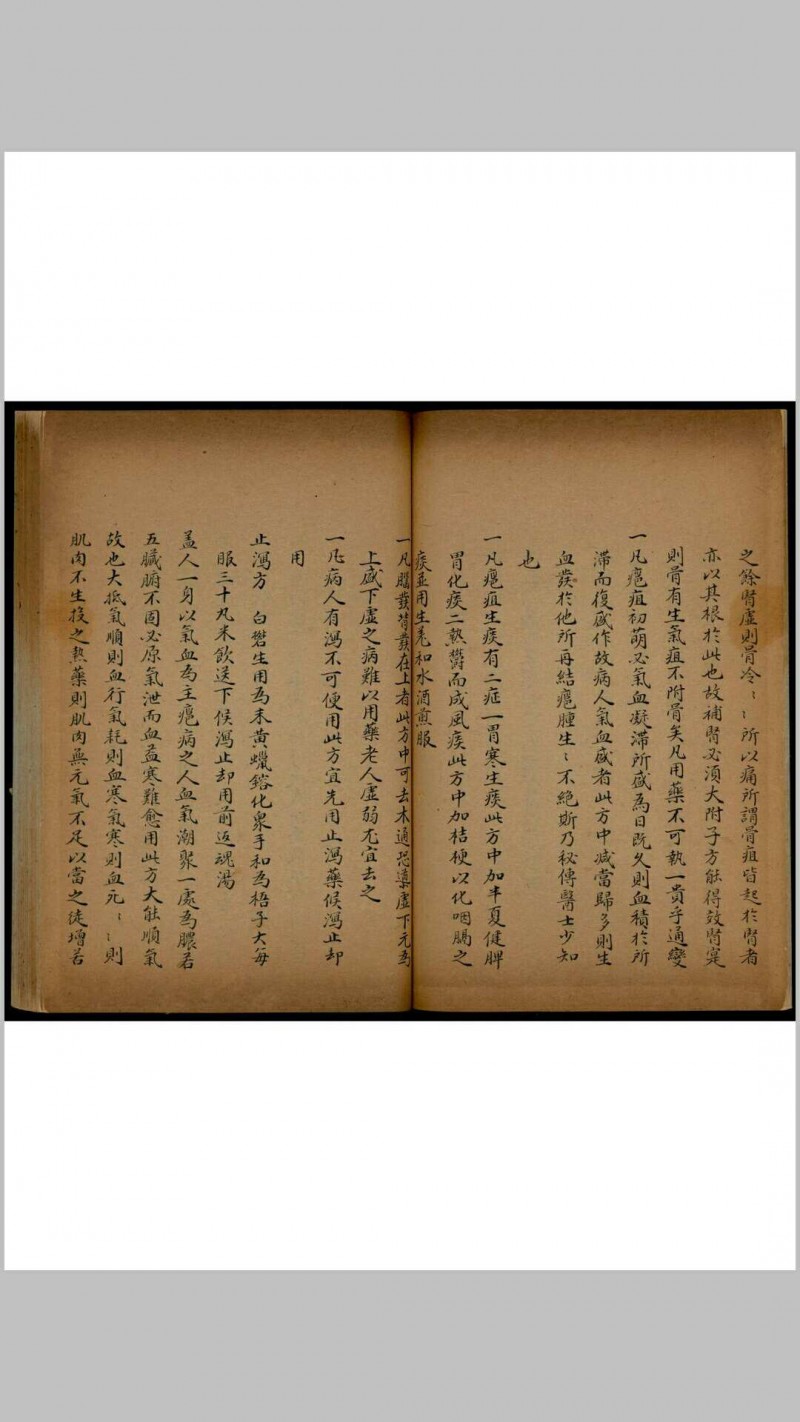 之餘腎虛則骨冷〻〻所以痛所謂骨疽皆起於腎者
亦以其根於此也故補腎必須大附子方能得效腎寔
則骨有生氣疽不附骨矣凡用藥不可執一貴乎通變
一凡癰疽初萌必氣血凝滯所盛為日既久則血積於所
滯而復盛作故病人氣血盛者此方中减當歸多則生
血發於他所再結癰腫生〻不絕斯乃秘傳醫士少知
也
一凡癰疽生痰有二症一胃寒生痰此方中加半夏健脾
胃化痰二熱鬱而成風痰此方中加桔梗以化咽膈之
痰並用生羗和水酒煎服
一凡腦發背發在上者此方中可去木通恐導虛下元為
上盛下虛之病難以用藥老人虛弱尤宜去之
一凡病人有瀉不可便用此方宜先用止瀉藥候瀉止却
用
止瀉方 白礬生用為末黃蠟鎔化衆手和為梧子大每
服三十丸米飲送下候瀉止却用前返魂湯
盖人一身以氣血為主癰病之人血氣潮聚一處為膿若
五臟腑不固必原氣泄而血益寒難愈用此方大能順氣
故也大抵氣順則血行氣耗則血寒氣寒則血元〻則
肌肉不生投之熱藥則肌肉無元氣不足以當之徒增苦